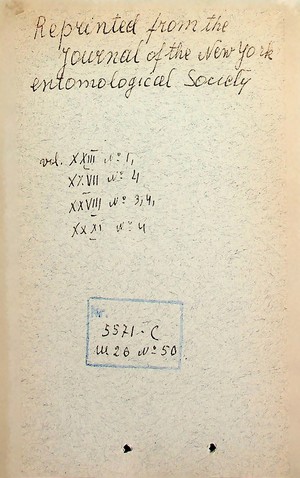 Reprinted from the
Journal of the New York
entomological Society
vol. XXIII № 1,
XXVII № 4
XXVIII № 3,4,
XXXI № 4
Nr.
5571-C
Ш 26 № 50